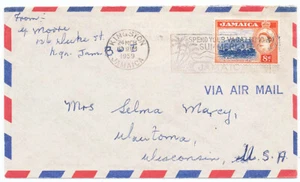 From:-
Moore
136 Duke St
Kgn. Jam
KINGSTON
1959
JAMAICA
SPEND YOUR
SUN
JAMAICA
8D
VIA AIR MAIL
Mrs Selma Marcy,
Wautoma,
Wisconsin, U.S.A